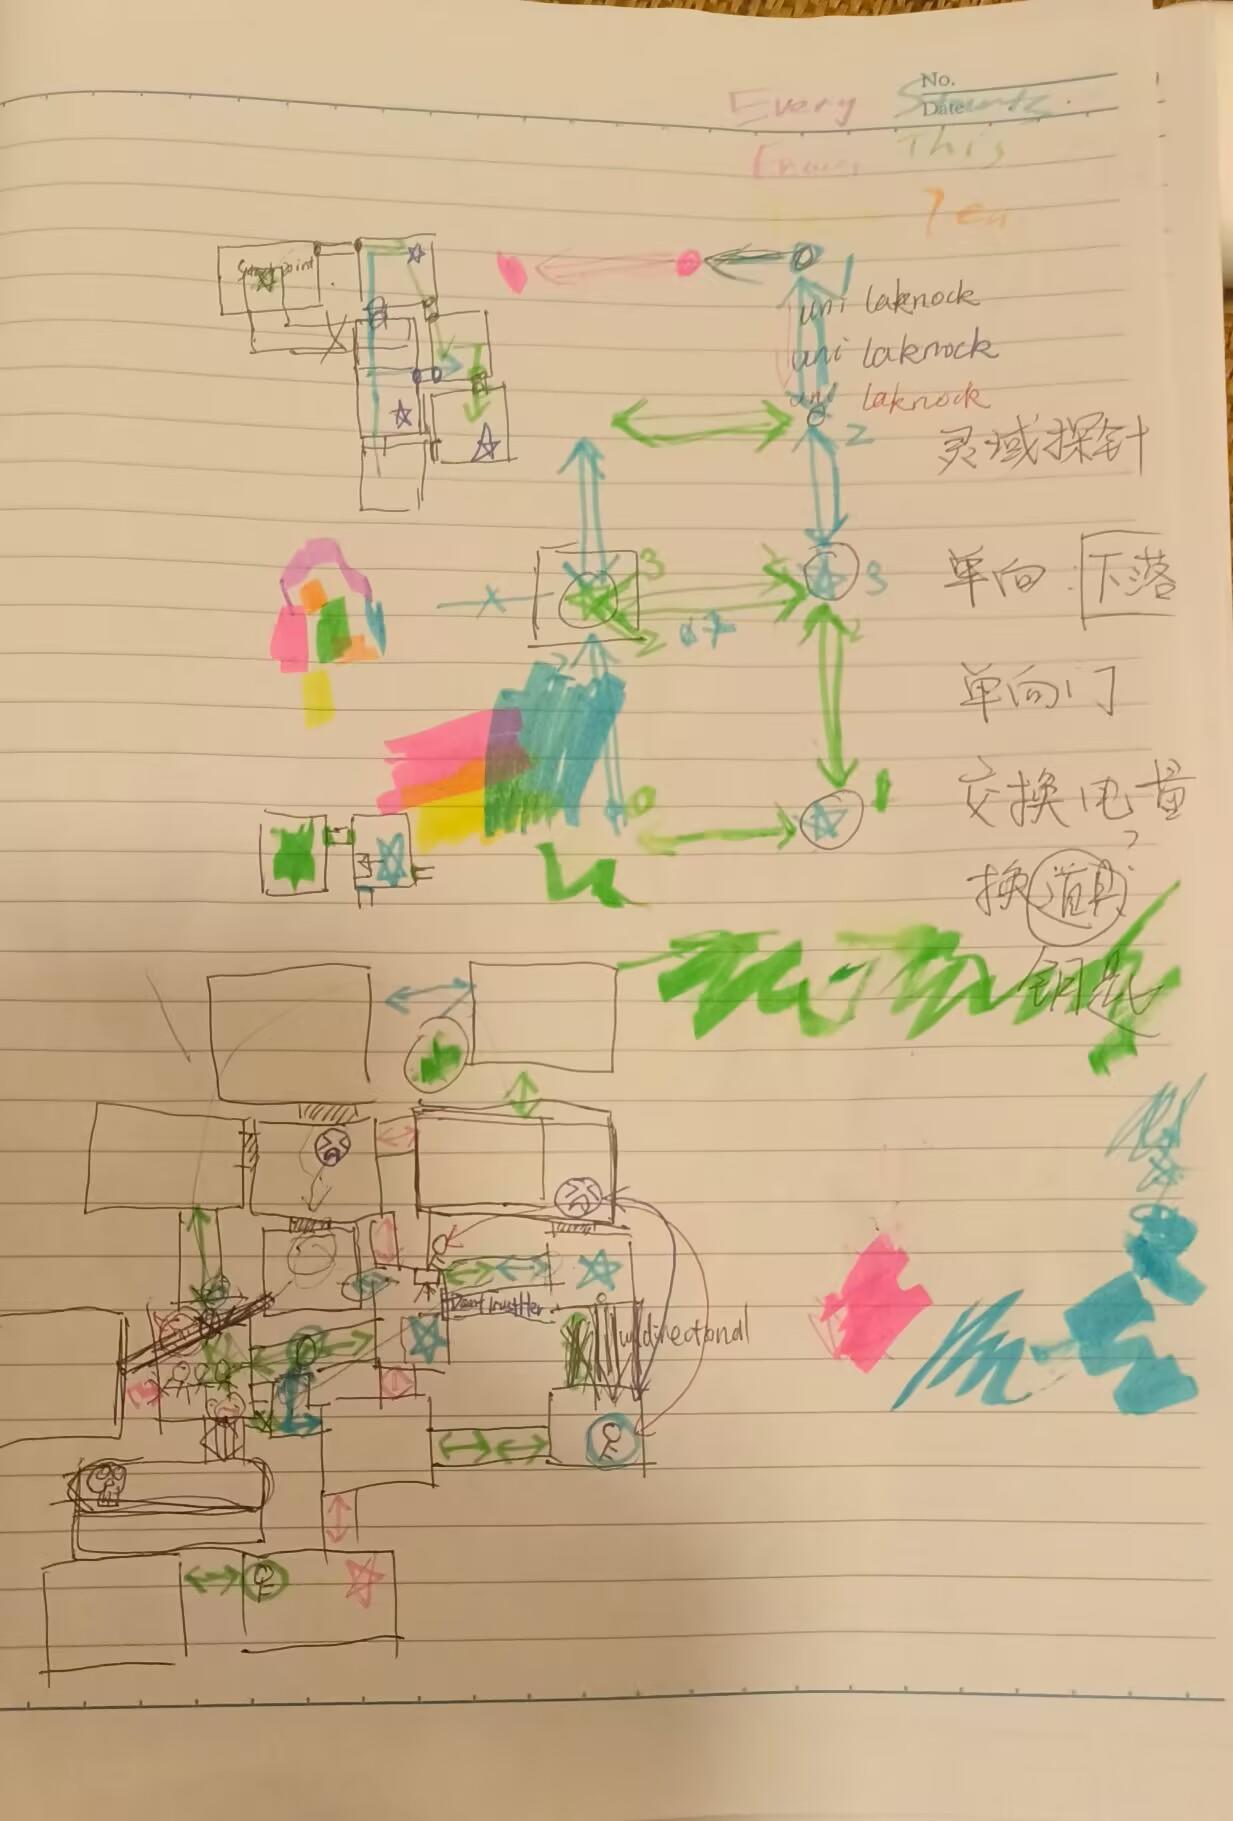 No.
Date
Every
This
Start point
1
uni laknock
uni laknock
uni laknock
2
灵域探针
3
3
单向:下落
2
2
单向门
0
1
交换电量
换道具
钥匙
Dont trust Her
unidirectional